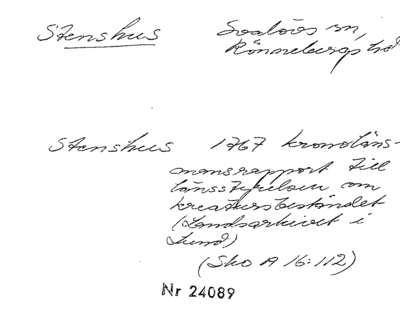 Stenshus Svalövs sn,
Rönnebergs hd
Stenshus 1767 kronoläns-
mansrapport till
länsstyrelsen om
kreatursbeståndet
(Landsarkivet i
Lund)
(Sko A 16:112)
Nr 24089